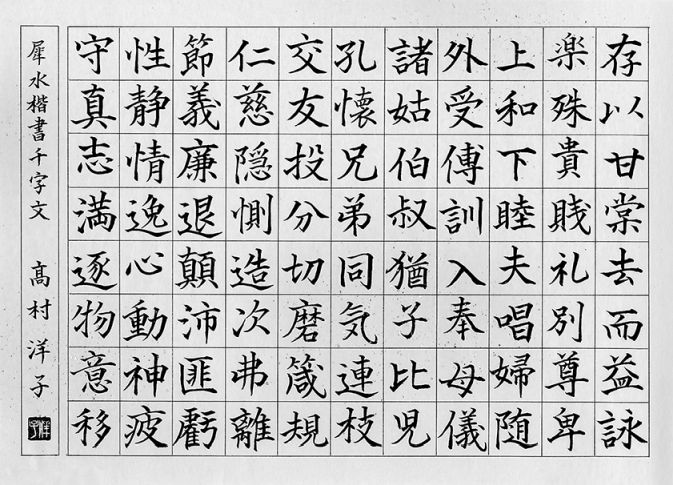 存以甘棠去而益詠
楽殊貴賎礼別尊卑
上和下睦夫唱婦随
外受傅訓入奉母儀
諸姑伯叔猶子比児
孔懐兄弟同気連枝
交友投分切磨箴規
仁慈隠惻造次弗離
節義廉退顛沛匪虧
性静情逸心動神疲
守真志満逐物意移
犀水楷書千字文 髙村洋子